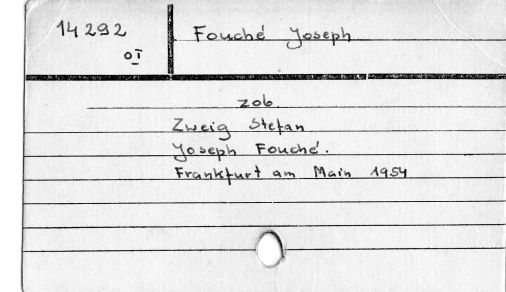 14292
OI
Fouché Joseph
zob.
Zweig Stefan
Joseph Fouché.
Frankfurt am Main 1954